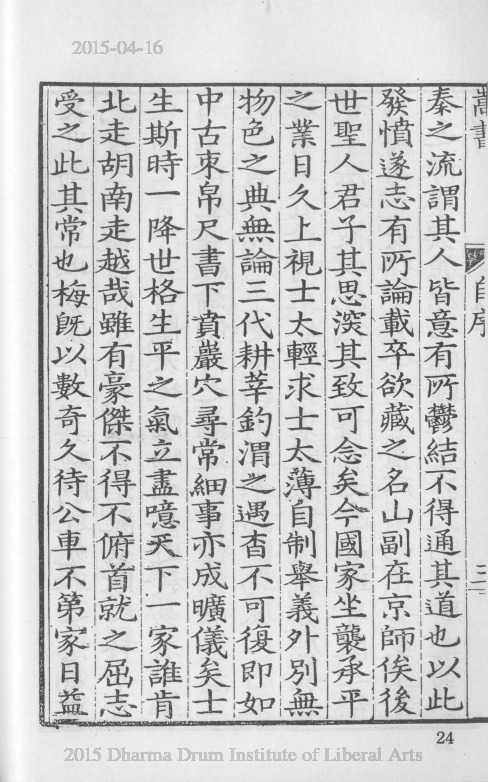 2015-04-16
嵩書
自序
三
秦之流謂其人皆意有所鬱結不得通其道也以此
發憤遂志有所論載卒欲藏之名山副在京師俟後
世聖人君子其思深其致可念矣今國家坐襲承平
之業日久上視士太輕求士太薄自制舉義外別無
物色之典無論三代耕莘釣渭之遇杳不可復即如
中古束帛尺書下賁巖穴尋常細事亦成曠儀矣士
生斯時一降世格生平之氣立盡噫天下一家誰肯
北走胡南走越哉雖有豪傑不得不俯首就之屈志
受之此其常也梅既以數奇久待公車不第家日益
24
2015 Dharma Drum Institute of Liberal Arts